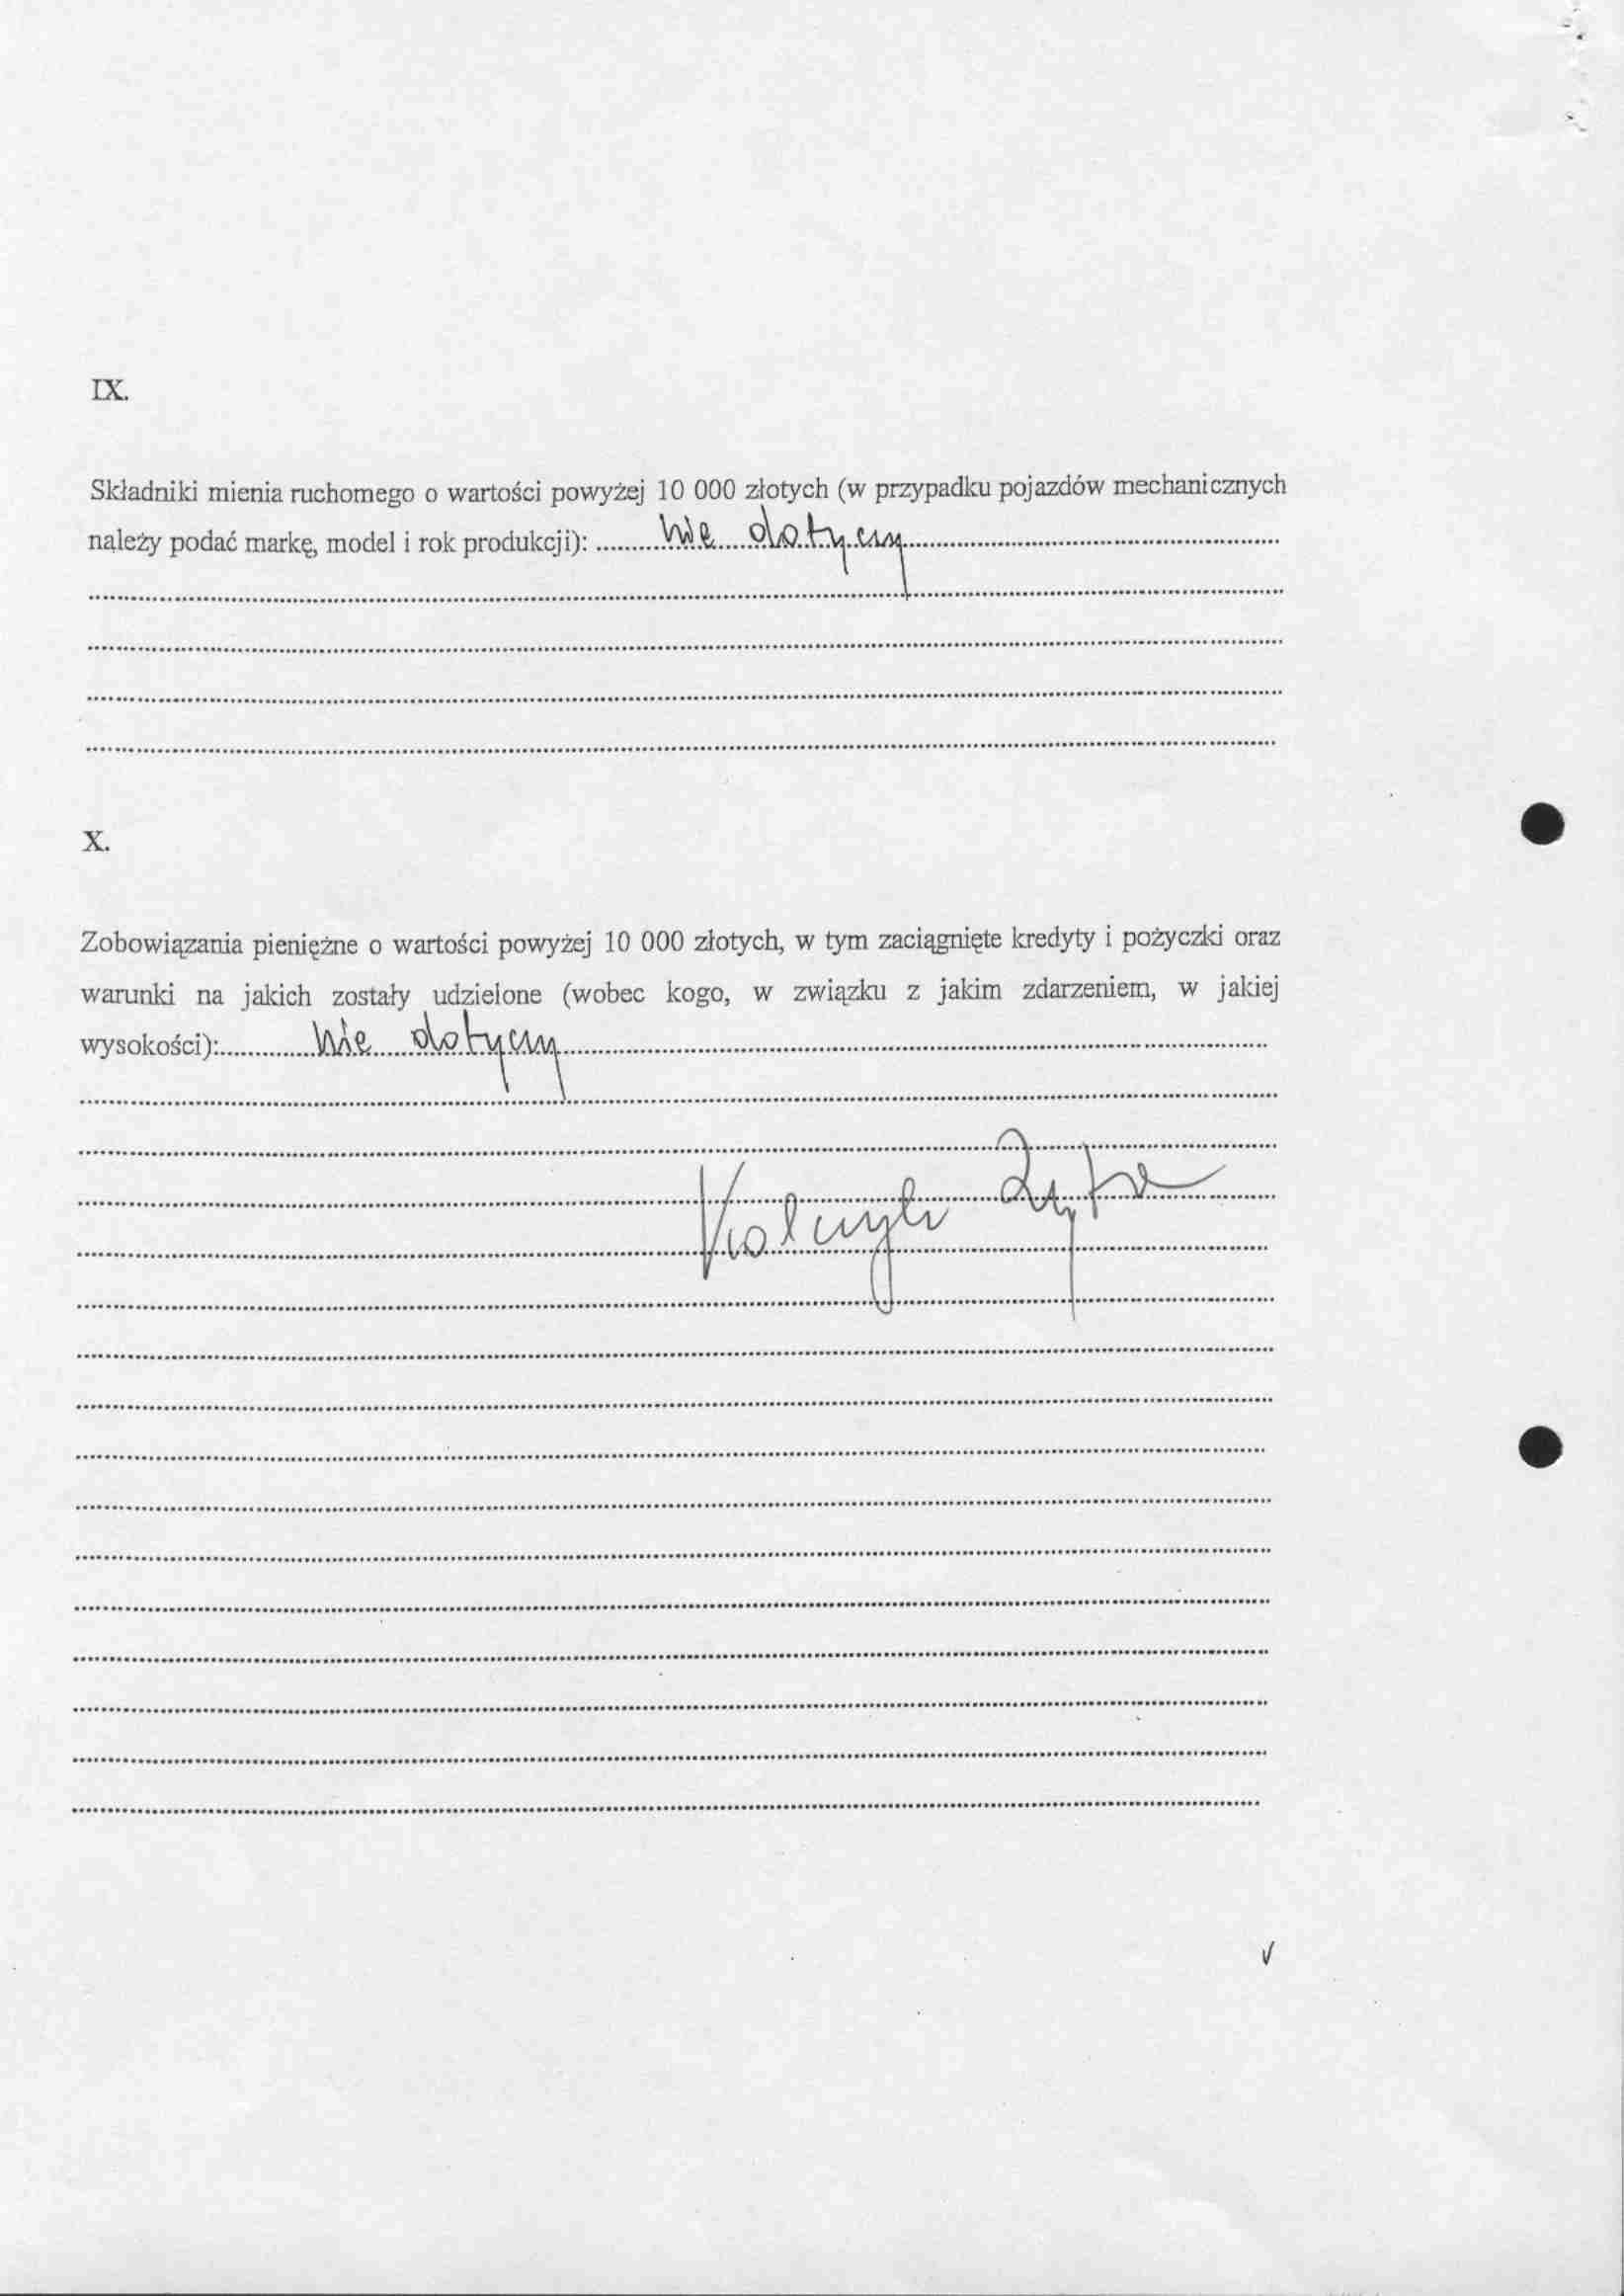 IX.
Składniki mienia ruchomego o wartości powyżej 10 000 złotych (w przypadku pojazdów mechanicznych
należy podać markę, model i rok produkcji): ..........nie dotyczy..........
X.
Zobowiązania pieniężne o wartości powyżej 10 000 złotych, w tym zaciągnięte kredyty i pożyczki oraz
warunki na jakich zostały udzielone (wobec kogo, w związku z jakim zdarzeniem, w jakiej
wysokości):..........nie dotyczy..........